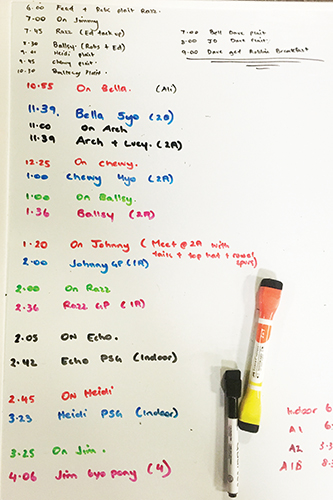 6.00 Feed + Plait Razz.
7.00 On Jimmy
7.45 Razz (Ed back up)
8.30 Ballsy. (Robs + Ed)
9.00 Heidi plait
9.45 Chewy plait.
10.30 Ballsy Plait.
7.00 Bell Dave plait
8.00 JD Dave Plait.
9.00 Dave get Robbie Breakfast
10.55 On Bella. (Ali)
11.39. Bella 5yo (2B)
11.00 On Arch
11.39 Arch + Lucy. (2A)
12.25 On Chewy.
1.00 Chewy 4yo (2A)
1.00 On Ballsy.
1.36 Ballsy (2A)
1.20 On Johnny (Meet @ 2A with
tails + top hat +
2.00 Johnny GP (1A)
2.00 On Razz
2.36 Razz GP (1A)
2.05 ON Echo.
2.42 Echo PSG (Indoor)
2.45 ON Heidi
3.23 Heidi PSG (Indoor)
3.25 On Jim.
4.06 Jim 6yo pony (4)
Indoor 6
A1 6.
A2 3.
A1B 8.